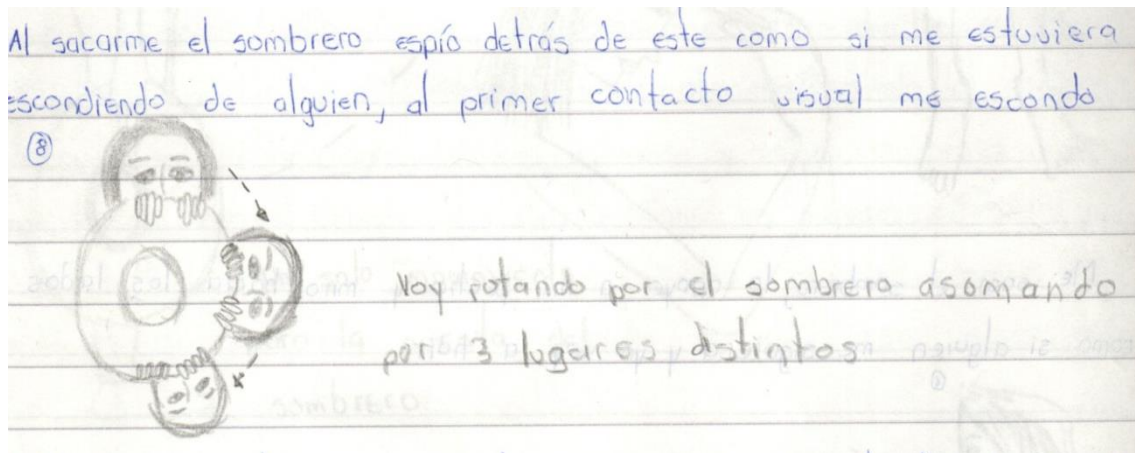 Al sacarme el sombrero espío detrás de este como si me estuviera
escondiendo de alguien, al primer contacto visual me escondo
⑧
Voy rotando por el sombrero asomando
por 3 lugares distintos